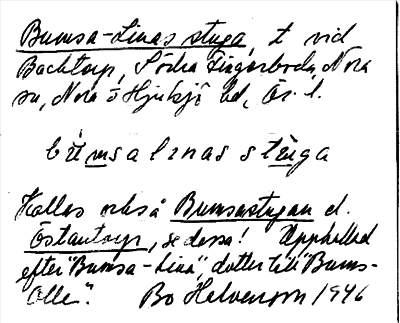 Bumsa-Linas stuga, t. vid
Backtorp, Södra Fingerboda, Nora
sn, Nora o Hjulsjö bd, Ör. l.
bùmsa linas stùga
Kallas också Bumsastugan el.
Östantorp, se dessa! Uppkallad
efter "Bumsa-Lina", dotter till "Bums-
Olle". Bo Helvenson 1946